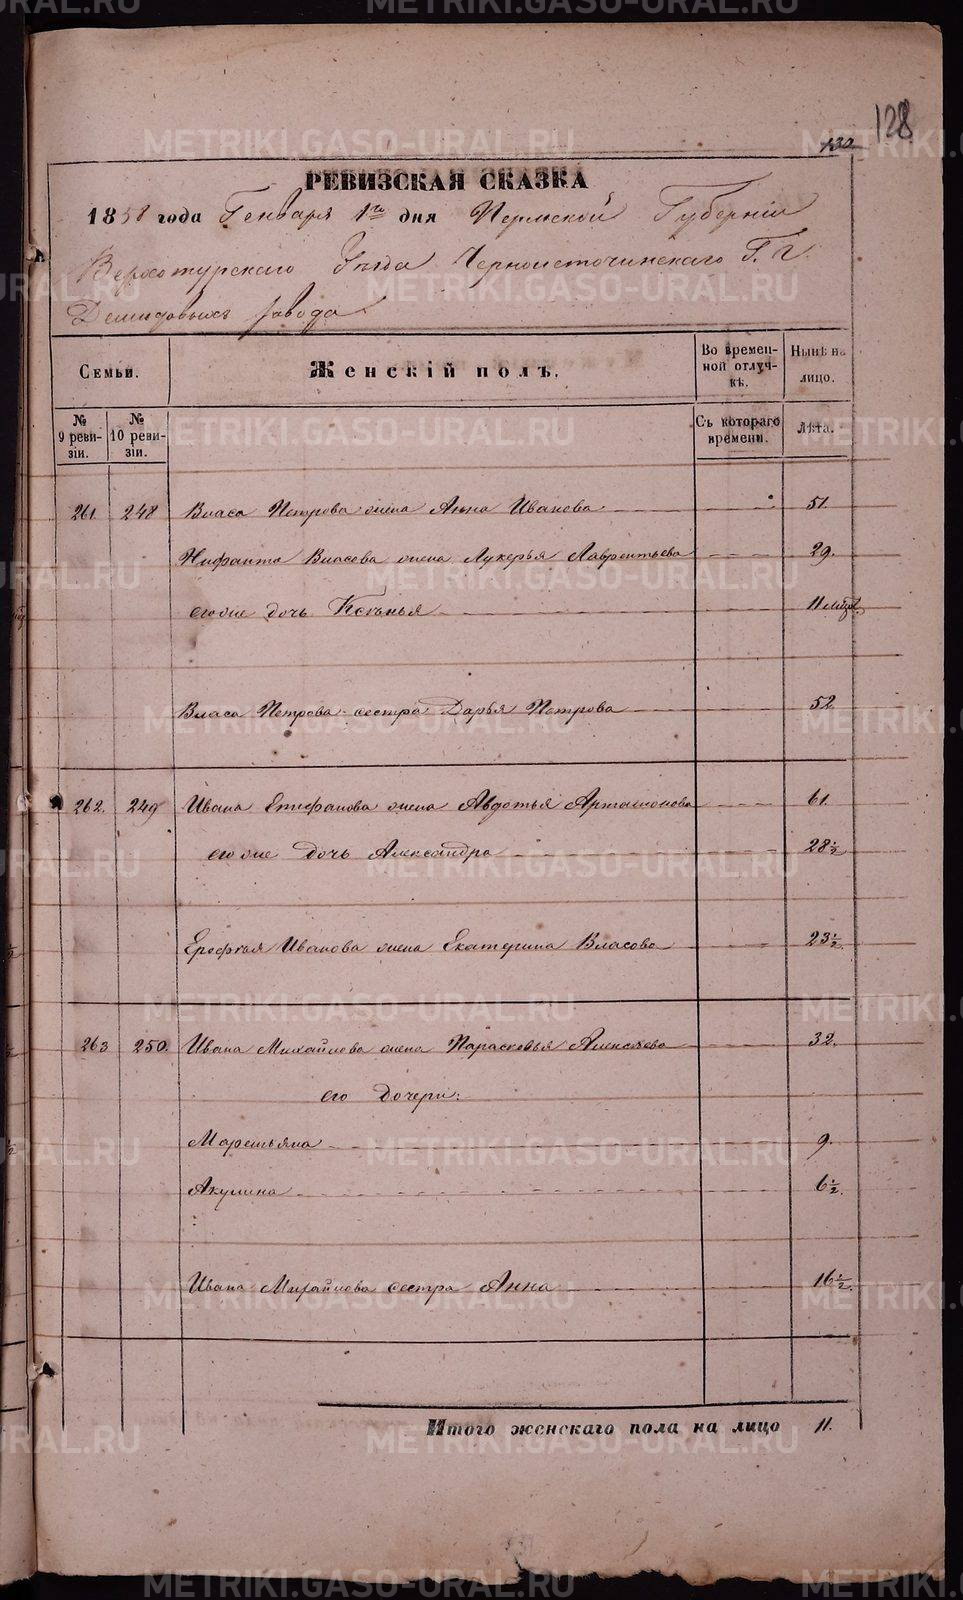 128
130
РЕВИЗСКАЯ СКАЗКА
1858 года Генваря 1го дня Пермской Губерніи
Верхотурскаго Уѣзда Черноисточинскаго Г. Г.
Демидовыхъ завода
Семьи.
Женскій полъ.
Во времен-
ной отлуч-
кѣ.
Нынѣ на
лицо.
№
9 реви-
зіи.
№
10 реви-
зіи.
Съ котораго
времени.
Лѣта.
261 248 Власа Петрова жена Анна Иванова 51.
Нифанта Власова жена Лукерья Лаврентьева 29.
его же дочь Ксенья 11 мѣс.
Власа Петрова сестра Дарья Петрова 52
262. 249 Ивана Епифанова жена Авдотья Артамонова 61.
его же дочь Александра 28 1/2
Ерофѣя Иванова жена Екатерина Власова 23 1/2.
263 250. Ивана Михайлова жена Парасковья Алексѣева 32.
его дочери:
Маремьяна 9.
Акулина 6 1/2.
Ивана Михайлова сестра Анна 16 1/2.
Итого женскаго пола на лицо 11.
METRIKI.GASO-URAL.RU